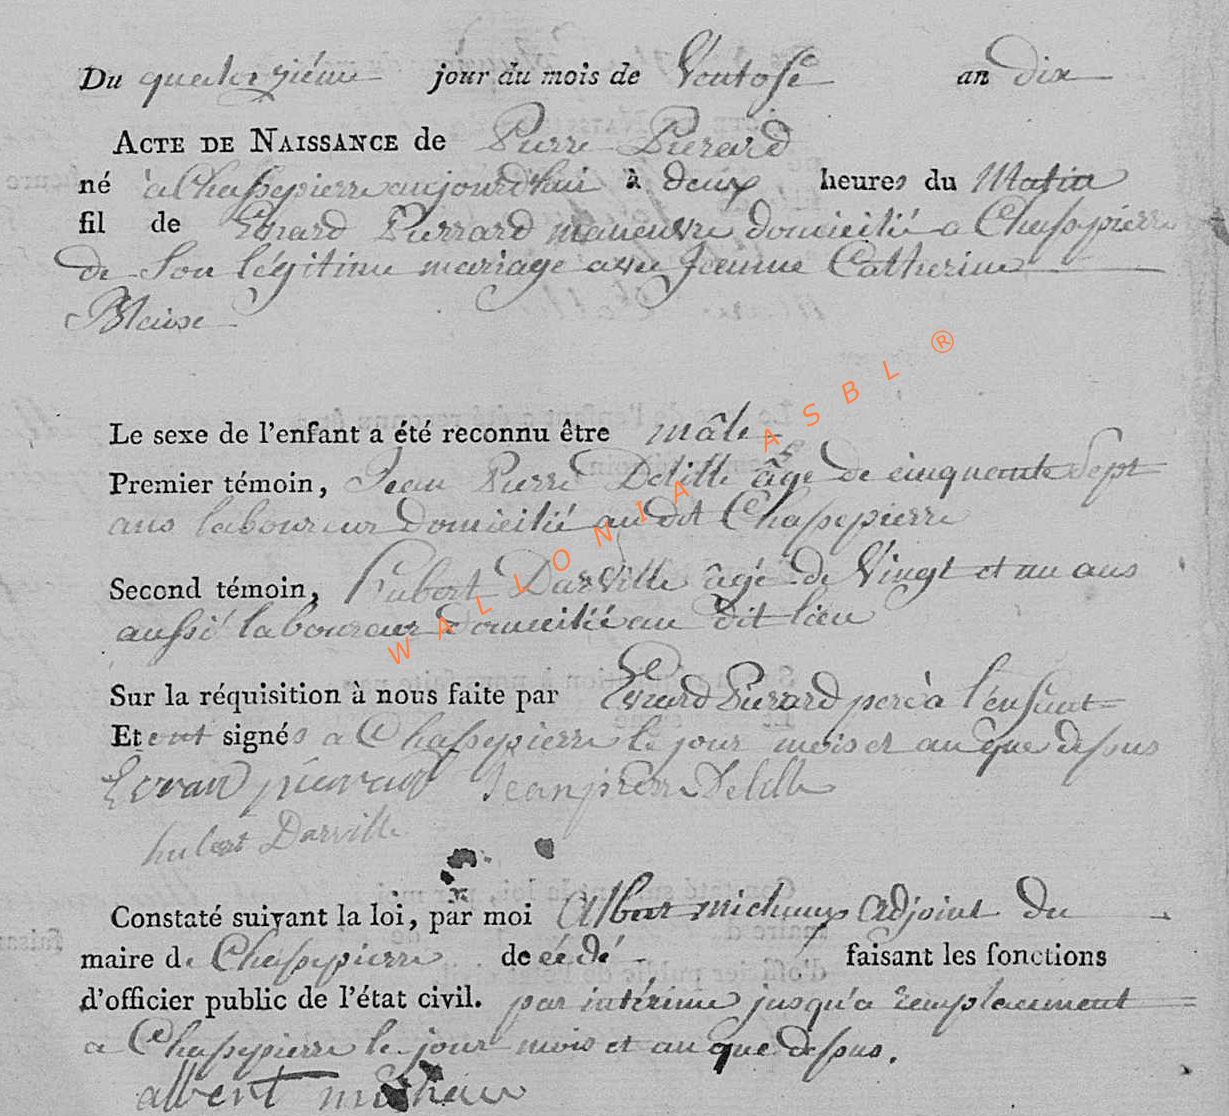 Du quatorzième jour du mois de Ventose an dix
ACTE DE NAISSANCE de Pierre Pierard
né à Chassepierre aujourd'hui à deux heures du Matin
fil de Evrard Pierrard maneuvre domicilié a Chassepierre
de Son légitime mariage avec Jeanne Catherine
Blaise
Le sexe de l'enfant a été reconnu être mâle
Premier témoin, Jean Pierre Delille âgé de cinquante Sept
ans laboureur domicilié au dit Chassepierre
Second témoin, hubert Darville âgé de Vingt et un ans
aussi laboureur domicilié au dit lieu
Sur la réquisition à nous faite par Evrard Pierard pere à l'enfant
Et ont signés a Chassepierre le jour mois et an que dessus
Evrard pierard Jean pierre Delille
hubert Darville
Constaté suivant la loi, par moi Albert michaux Adjoint du
maire de Chassepierre décédé faisant les fonctions
d'officier public de l'état civil. par intérime jusqu'a remplacement
a Chassepierre le jour mois et an que dessus.
albert michaux
WALLONIA ASBL ®